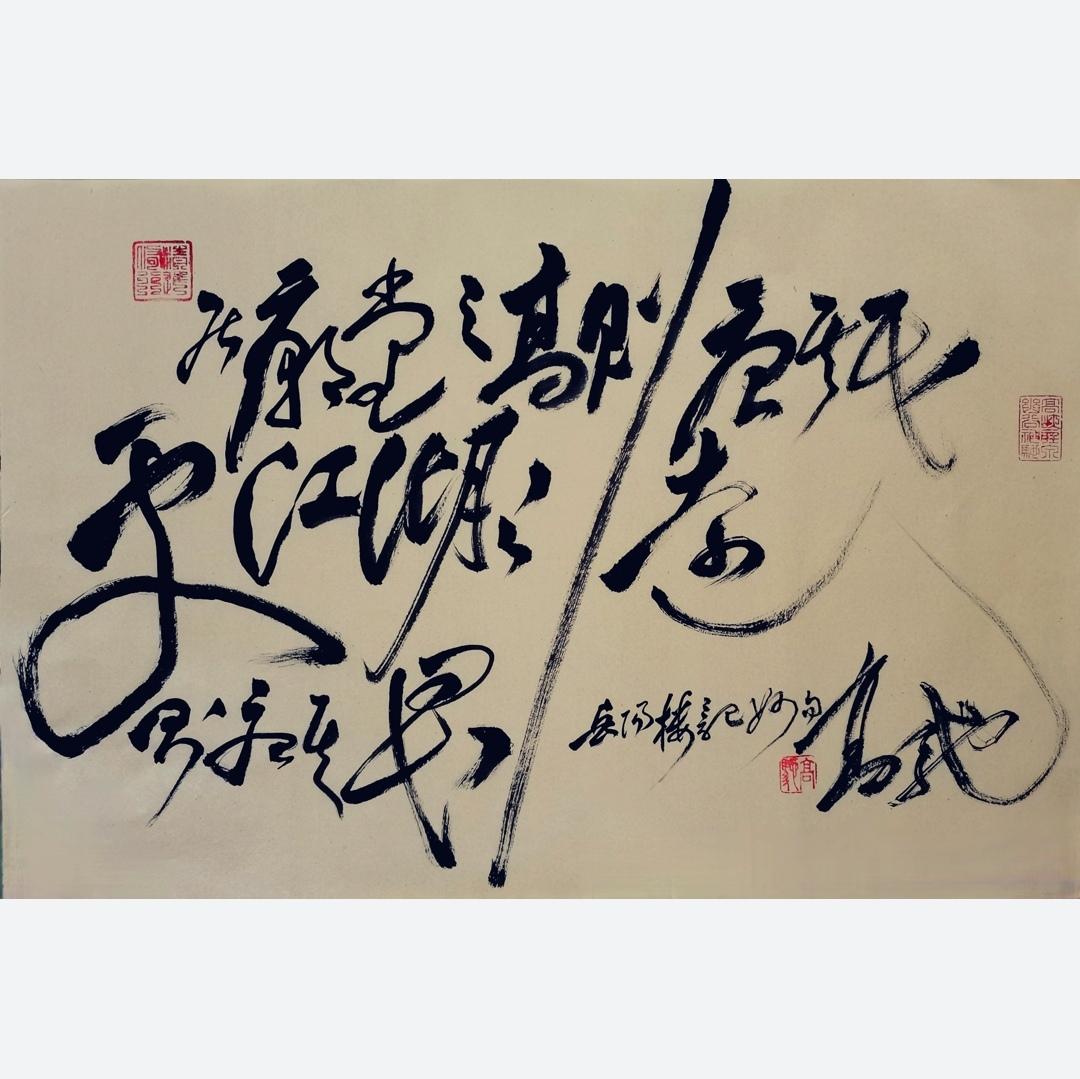 居廟堂之高则忧其民
處江湖之远
则忧其君
岳阳楼記妙句 高驰